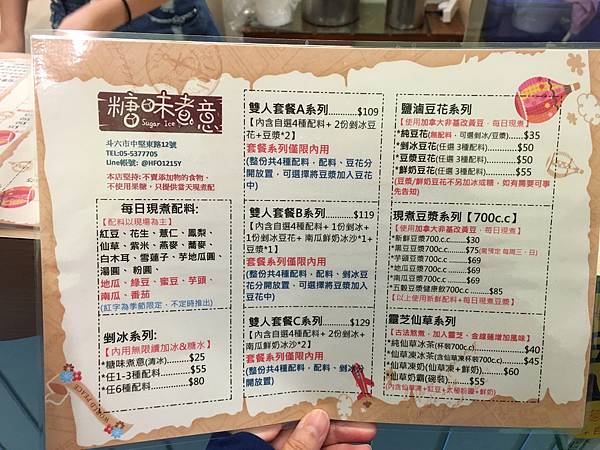 糖味煮意
Sugar Ice
斗六市中堅東路12號
TEL:05-5377705
Line帳號: @HFO1215Y
本店堅持:不賣添加物的食物,
不使用果糖,只提供當天現煮配
每日現煮配料:
【配料以現場為主】
紅豆、花生、薏仁、鳳梨、
仙草、紫米、燕麥、蕎麥、
白木耳、雪蓮子、芋地瓜圓
湯圓、粉圓、
地瓜、綠豆、蜜豆、芋頭、
南瓜、番茄
(紅字為季節限定、不定時推出)
剉冰系列:
【內用無限續加冰&糖水】
*糖味煮意(清冰)........$25
*任1-3種配料..........$55
*任6種配料............$80
雙人套餐A系列..........$109
【內含自選4種配料+ 2份剉冰豆
花+豆漿*2】
套餐系列僅限內用
(整份共4種配料,配料、豆花分
開放置,可選擇將豆漿加入豆花
中)
雙人套餐B系列.........$119
【內含自選4種配料+ 1份剉冰+
1份剉冰豆花+ 南瓜鮮奶冰沙*1+
豆漿*1】
套餐系列僅限內用
(整份共4種配料,配料、剉冰豆
花分開放置,可選擇將豆漿加入
豆花中)
雙人套餐C系列.........$129
【內含自選4種配料+ 2份剉冰+
南瓜鮮奶冰沙*2】
套餐系列僅限內用
(整份共4種配料,配料、剉冰分
開放置)
鹽滷豆花系列
【使用加拿大非基改黃豆,每日現煮】
*純豆花(無配料,可選剉冰/豆漿).......$35
*剉冰豆花(任選 3種配料)...........$50
*豆漿豆花(任選 3種配料)...........$50
*鮮奶豆花(任選 3種配料)...........$55
(豆漿/鮮奶豆花不另加冰或糖,如有需要可事
先告知)
現煮豆漿系列【700c.c】
【使用加拿大非基改黃豆,每日現煮】
*新鮮豆漿700c.c.............$30
*黑豆豆漿700c.c.............$75(需預定 每周三、日)
*芋頭豆漿700c.c.............$69
*地瓜豆漿700c.c.............$69
*南瓜豆漿700c.c.............$69
*五穀豆漿健康飲700c.c........$85
【以上使用新鮮配料+每日現煮豆漿】
靈芝仙草系列
【古法熬煮,加入靈芝、金線蓮增加風味】
*純仙草冰茶(杯裝700c.c)..........$40
*仙草凍冰茶(含仙草凍杯裝700c.c)....$45
*仙草凍奶(仙草凍+鮮奶).........$60
*仙草奶霸(碗裝)............$55